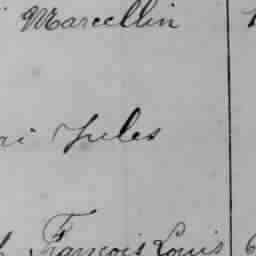 Marcellin
ri Jules
François Louis